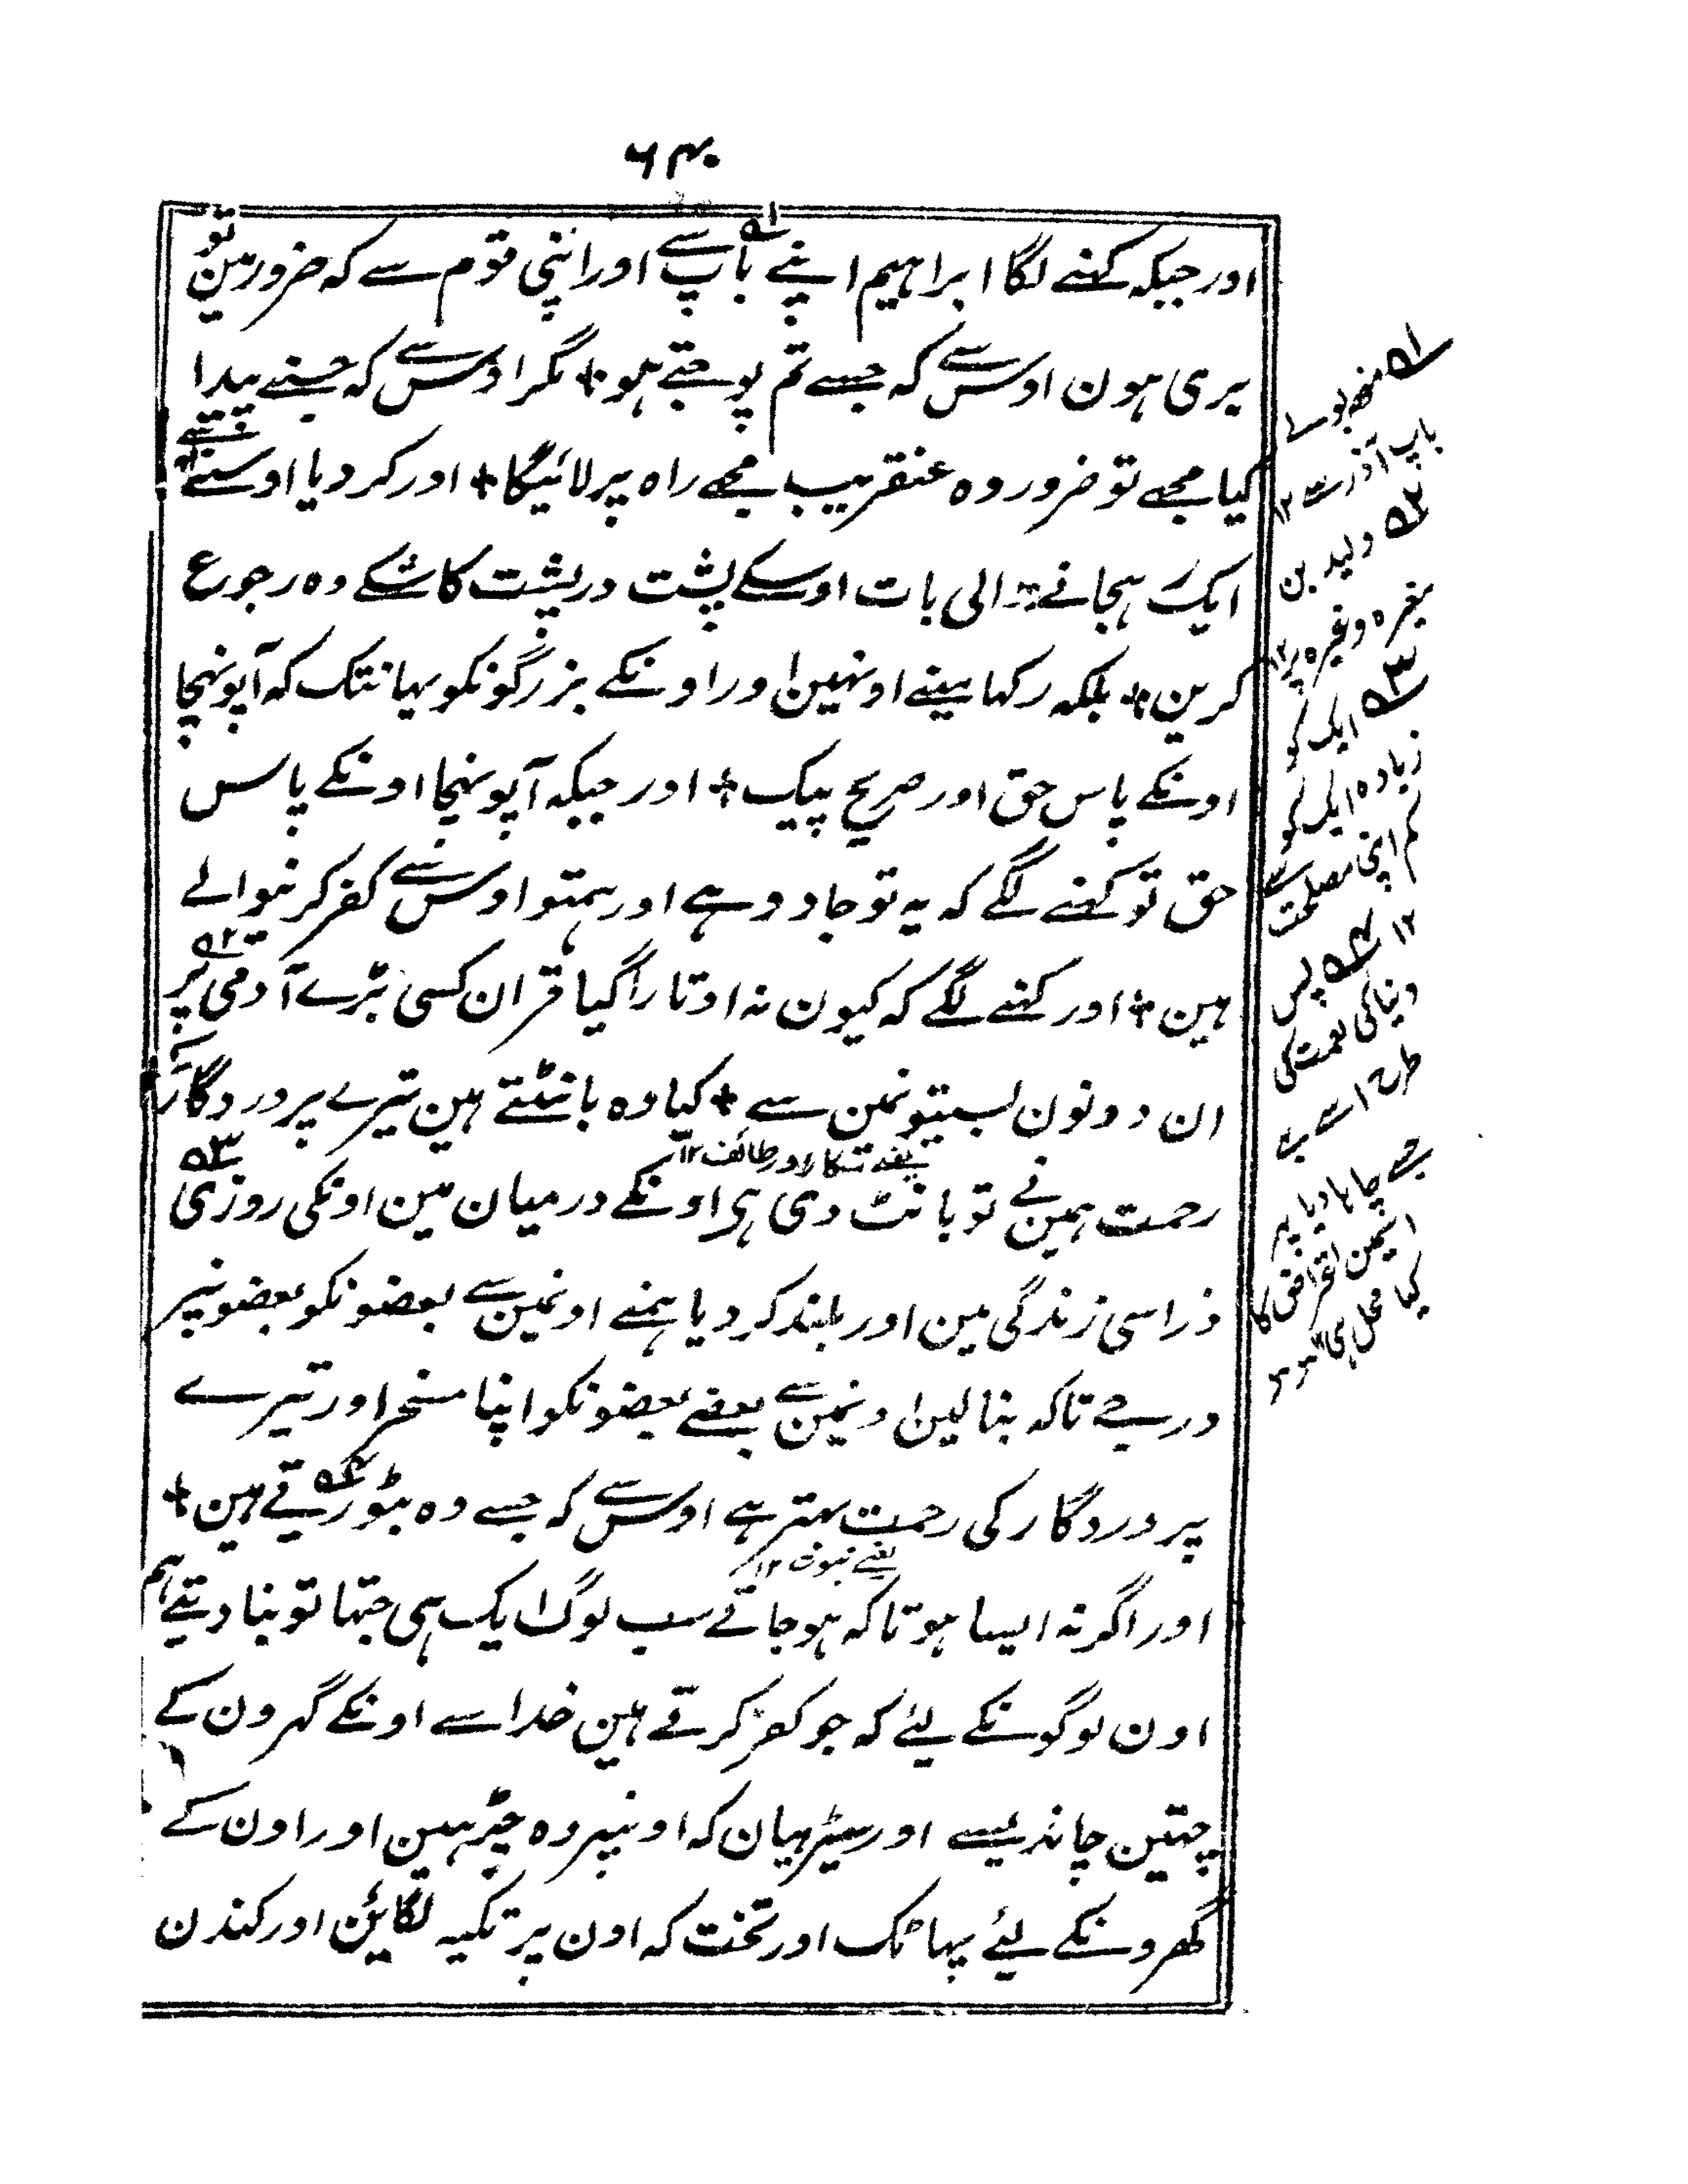 ۶۴۰
اورجبکہ کہنے لگا ابراہیم اپنے باپ۱ سے اور اپنی قوم سے کہ ضرور مین تو
بری ہون اوس سے کہ جسے تم پوجتے ہو + مگر اوس سے کہ جسنے پیدا
کیا مجھے تو ضرور وہ عنقریب مجھے راہ پر لائیگا + اور کر دیا اوسنے
ایک بچانے والی بات اوسکے پشت در پشت کاشکے وہ رجوع
کرین + بلکہ رکہا مینے اونہین اور اونکے بزرگونکو یہانتک کہ آپونہچا
اونکے پاس حق اور صریح پیک + اور جبکہ آپونہچا اونکے پاس
حق تو کہنے لگے کہ یہ تو جادو ہے اور ہمتو اوس سے کفر کرنیوالے
ہین + اور کہنے لگے کہ کیون نہ اوتارا گیا قران کسی بڑے آدمی پر ۲
ان دونون بستیونمین سے + کیا وہ بانٹتے ہین تیرے پروردگار کی
یعنے مکا اور طائف ۱۲
رحمت ہمین نے تو بانٹ دی ہی اونکے درمیان مین اونکی روزی ۳
ذرا سی زندگی مین اور بلند کر دیا ہمنے اونمین سے بعضونکو بعضونپر
درجے تاکہ بنا لین اونمین سے بعضے بعضونکو اپنا مسخر اور تیرے
پروردگار کی رحمت بہتر ہے اوس سے کہ جسے وہ بٹورتے ہین ۴ +
یعنے نبوت ۱۲
اور اگر نہ ایسا ہوتا کہ ہو جاتے سب لوگ ایک ہی جتہا تو بنا دیتے ہم
اون لوگونکے لیئے کہ جو کفر کرتے ہین خدا سے اونکے گہرون کے
چہتین چاندیسے اور سیڑہیان کہ اونپر وہ چڑہین اور اون کے
گھرونکے لیئے پہاٹک اور تخت کہ اون پر تکیہ لگائین اور کندن
۱ منھ بولے
باپ آذر سے ۱۲
۲ ولید بن
مغیرہ وغیرہ پر ۱۲
۳ ایک کو
زیادہ ایک کو
کم اپنی مصلحت سے
۱۲ ۴ پس
دنیا کی نعمت کی
طرح اسے بھی
جسے چاہا دیا پھر
انھین اعتراض کا
کیا محل ہی ۱۲